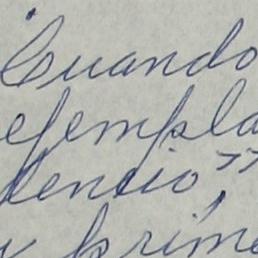 Cuando
ejempla
dencio",
y prime